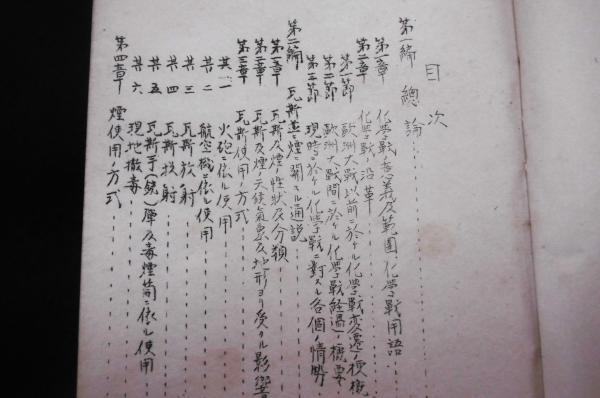 目次
第一編 總論
第一章 化學戰ノ意義及範圍化學戰用語
第二章 化學戰ノ沿革
第一節 歐洲大戰以前ニ於ケル化學戰変遷ノ梗概
第二節 歐洲大戰間ニ於ケル化學戰経過ノ概要
第三節 現時ニ於ケル化學戰ニ對スル各個ノ情勢
第二編 瓦斯並ニ煙ニ関スル通説
第一章 瓦斯及煙ノ性状及分類
第二章 瓦斯及煙ノ天候氣象及地形ヨリ受クル影響
第三章 瓦斯使用ノ方式
其ノ一 火砲ニ依ル使用
其ノ二 航空機ニ依ル使用
其ノ三 瓦斯放射
其ノ四 瓦斯投射
其ノ五 瓦斯手(銃)弾及毒煙筒ニ依ル使用
其ノ六 現地撒毒
第四章 煙使用ノ方式